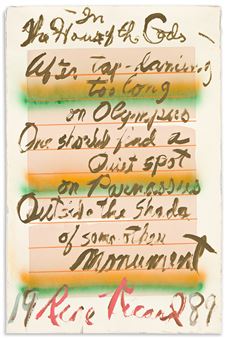 In
The House of the Gods –
After Tap-dancing
too long
on Olympus
One should find a
Quiet spot
on Parnassus
Outside the Shade
of some other
Monument
19 Rene Ricard 89